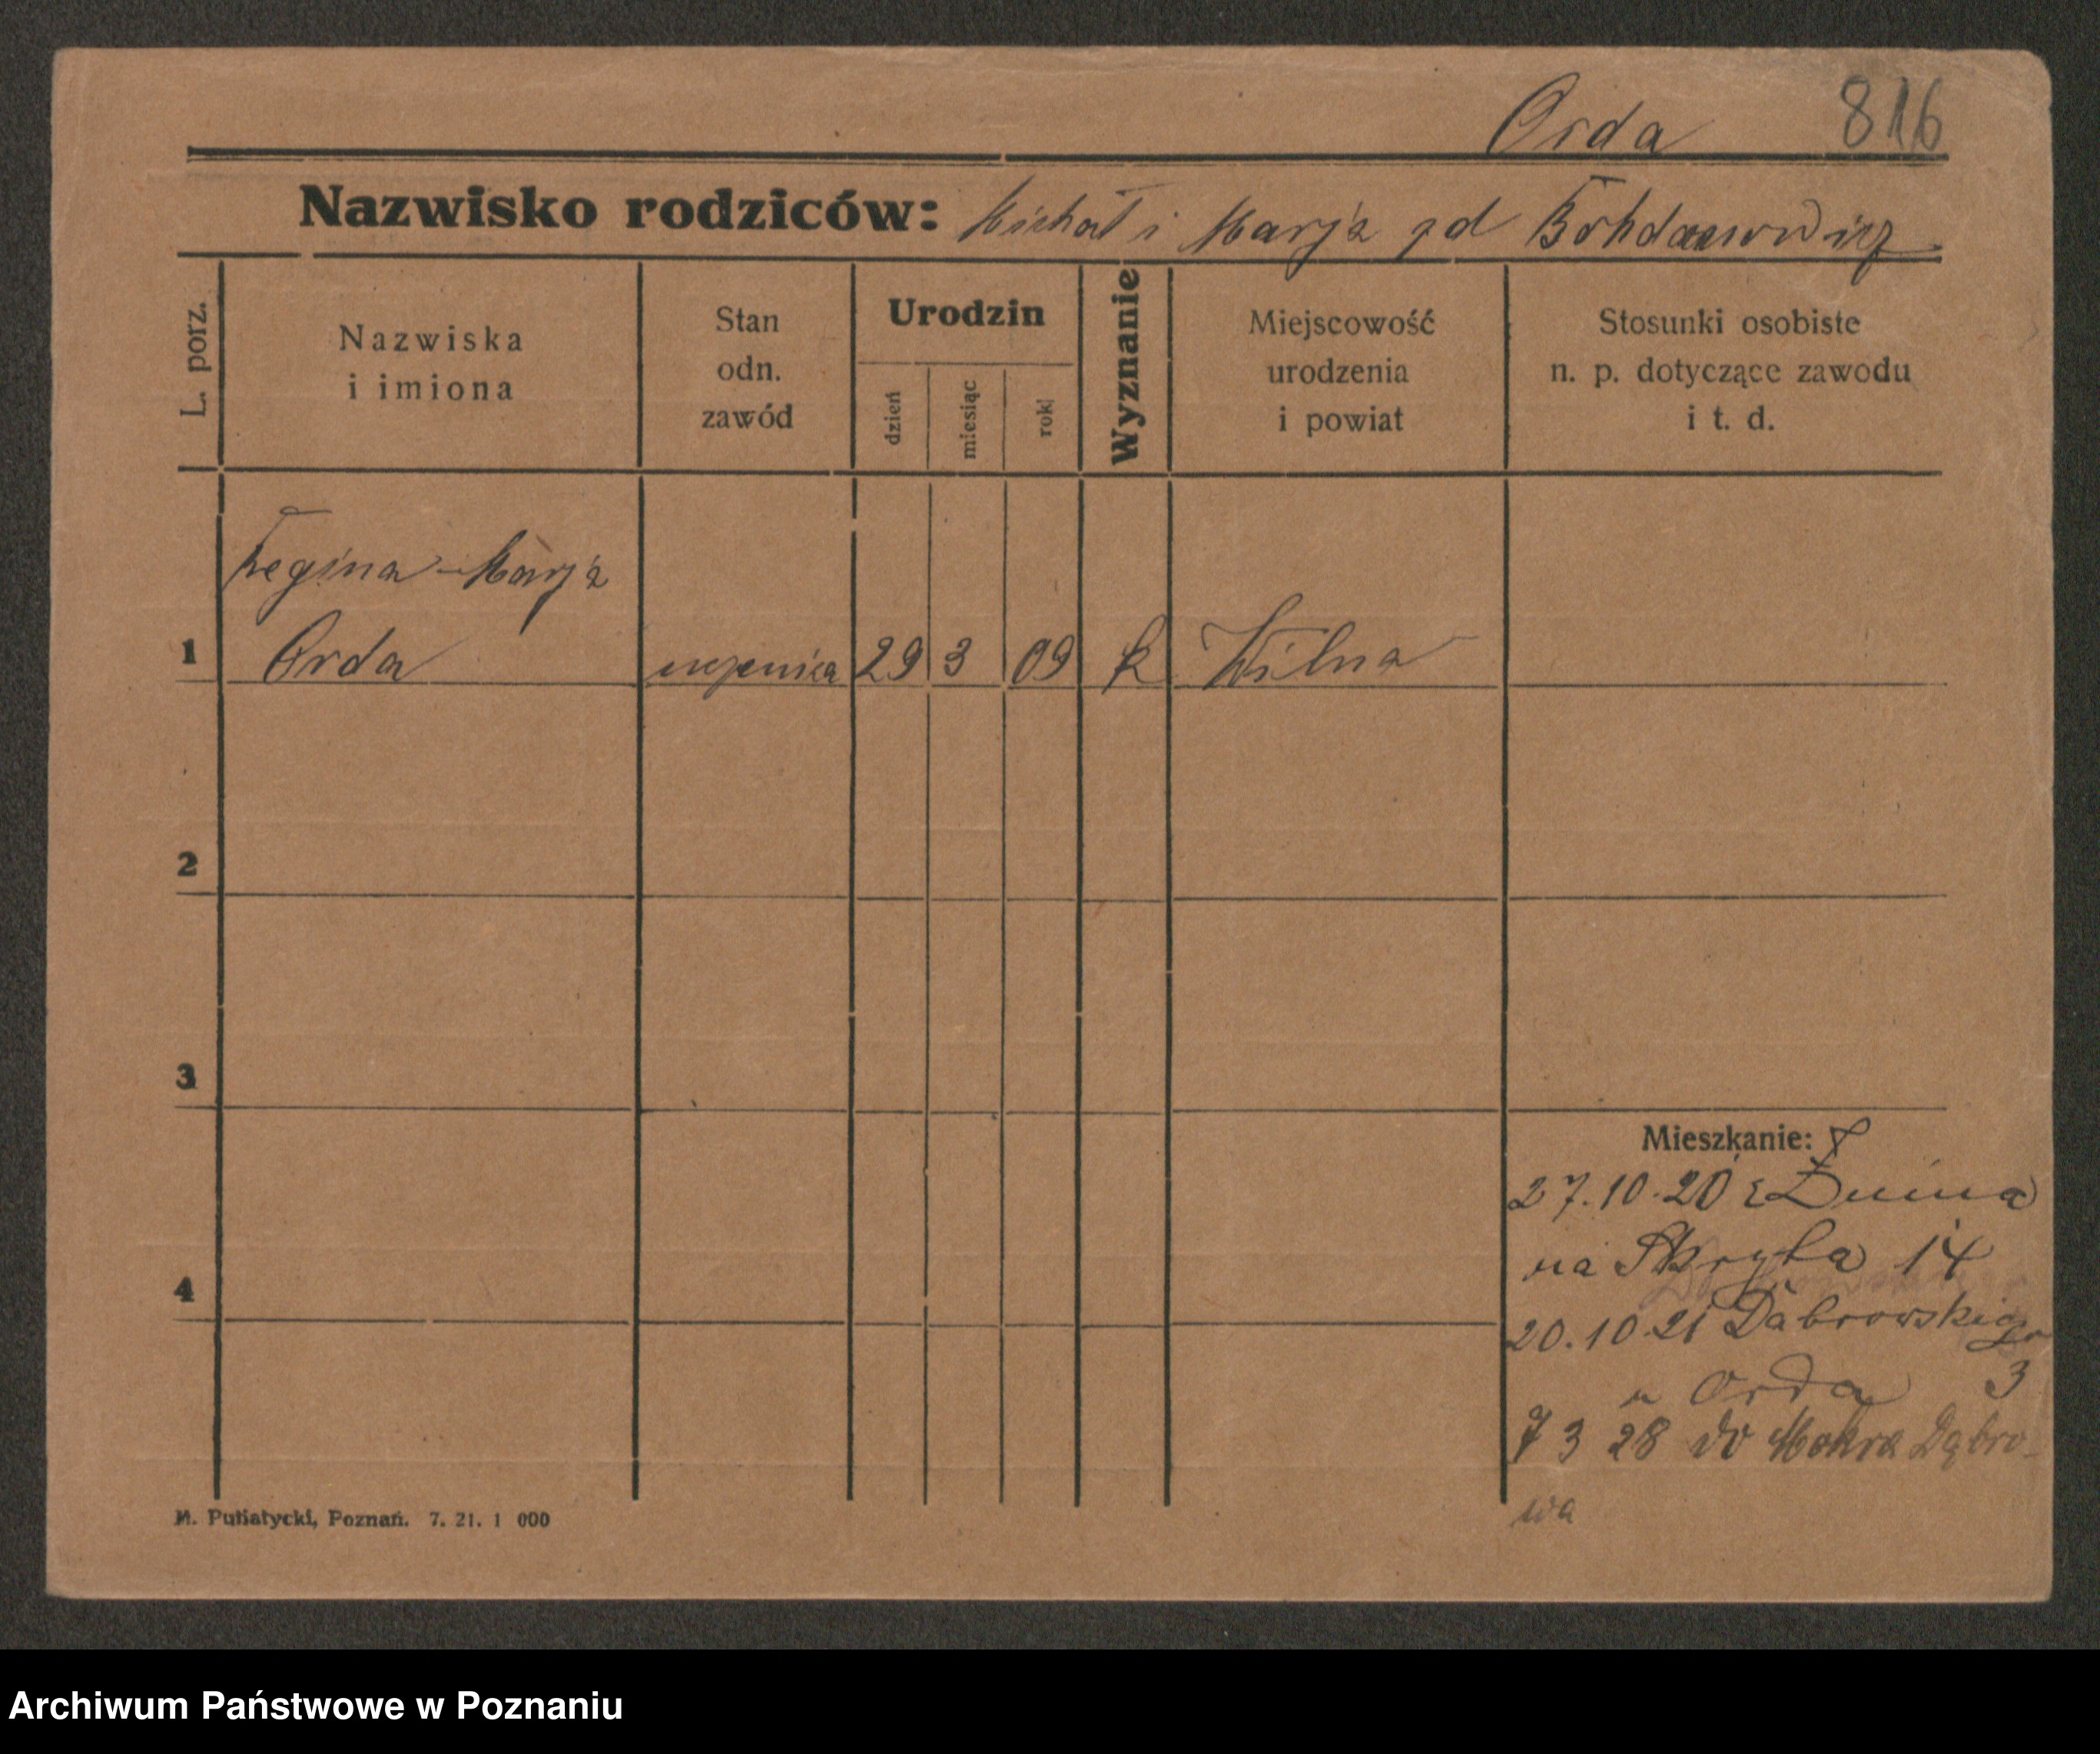 Orda 816
Nazwisko rodziców: Michał i Marja zd Bohdanowicz
L. porz.
Nazwiska
i imiona
Stan
odn.
zawód
Urodzin
dzień
miesiąc
rok
Wyznanie
Miejscowość
urodzenia
i powiat
Stosunki osobiste
n. p. dotyczące zawodu
i t. d.
Regina-Marja
1 Orda uczenica 29 3 09 k Wilna
2
3
Mieszkanie:
27.10.20 z Żnina
na Skryta 14
4
20.10.21 Dąbrowskiego
u Orda 3
7 3 28 do Mokra Dąbro-
wa
M. Putiatycki, Poznań. 7. 21. 1 000
Archiwum Państwowe w Poznaniu